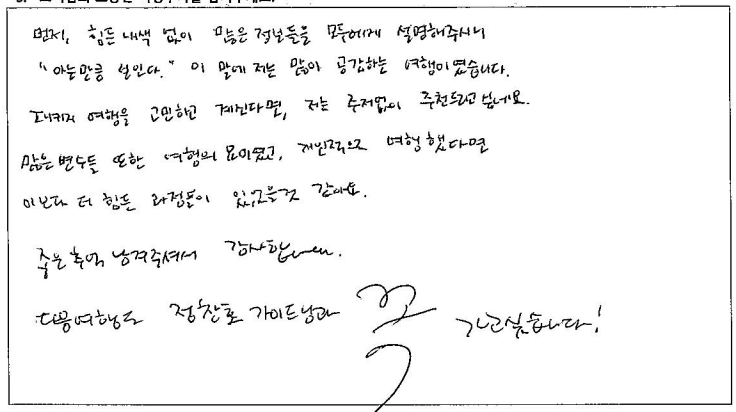 먼저, 힘든 내색 없이 많은 정보들을 모두에게 설명해주시니
"아는만큼 보인다." 이 말에 저는 많이 공감하는 여행이였습니다.
패키지 여행을 고민하고 계신다면, 저는 주저없이 추천드리고 싶네요.
많은 변수들 또한 여행의 묘미였고, 개인적으로 여행했다면
이보다 더 힘든 과정들이 있었을것 같아요.
좋은추억 남겨주셔서 감사합니다.
다음여행도 정찬호 가이드님과 꼭 가고싶습니다!